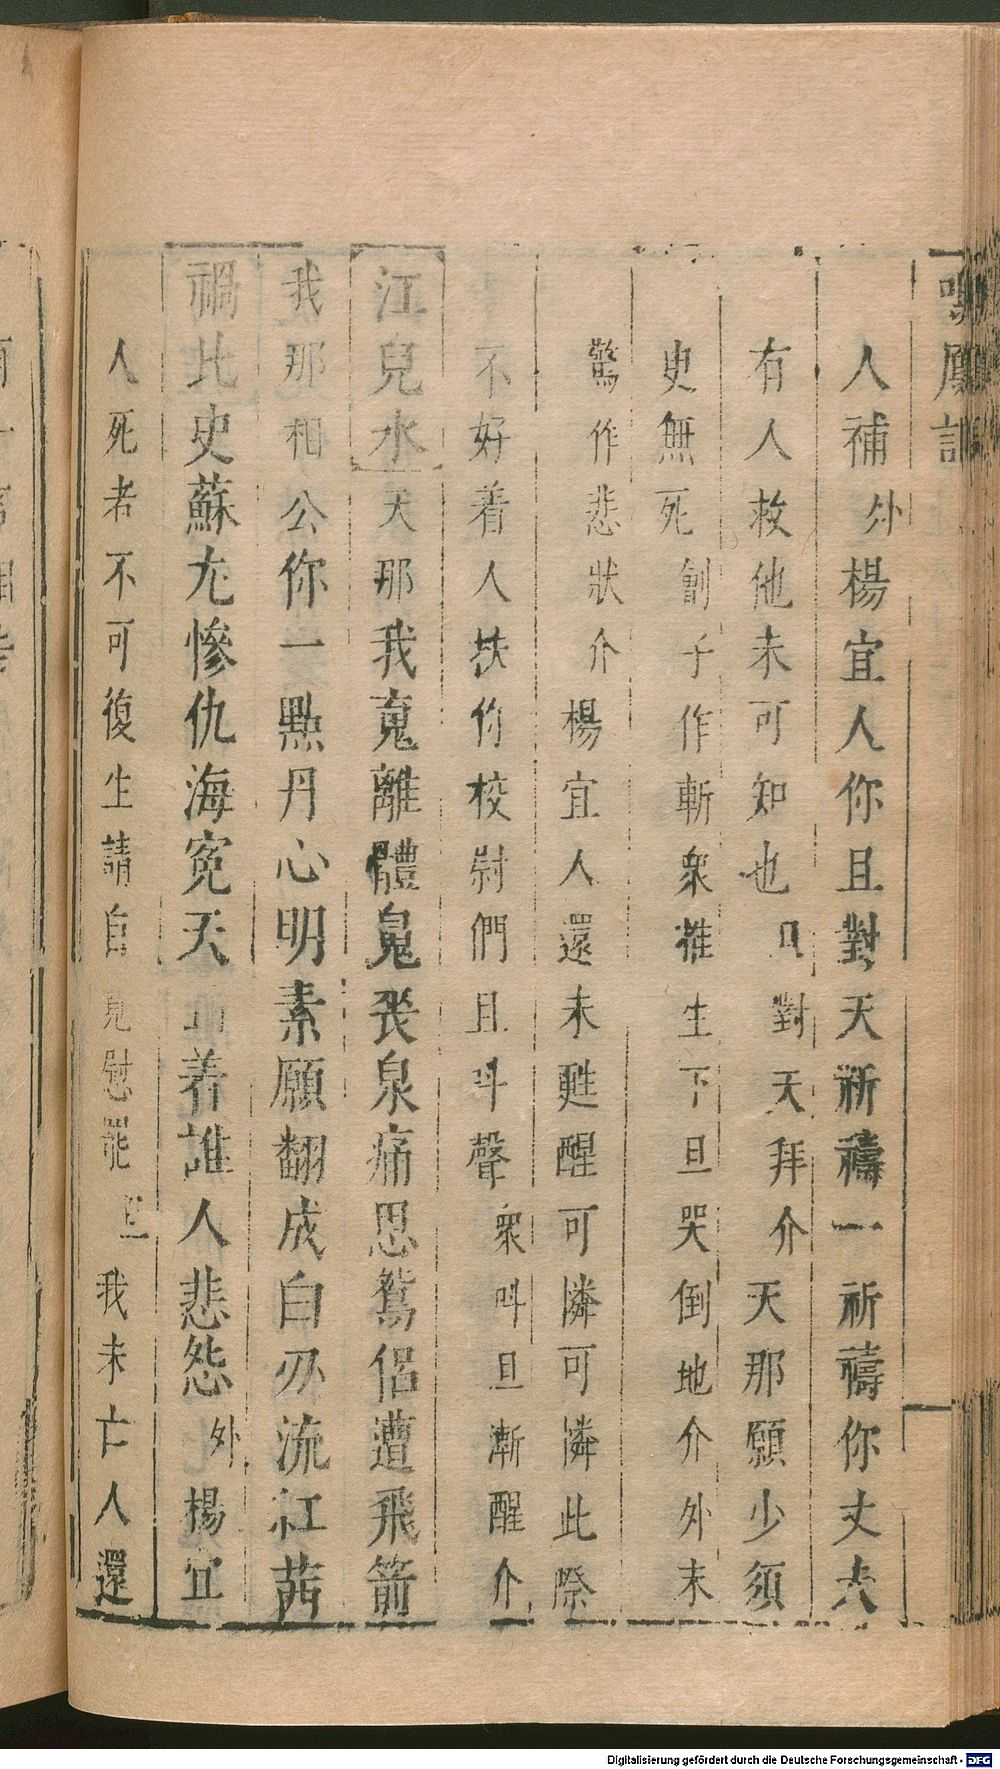 鳳記
人補外楊宜人你且對天祈禱一祈禱你丈夫
有人救他未可知也對天拜介天那願少須
史無死劊子作斬衆推生下旦哭倒地介外末
驚作悲狀介楊宜人還未甦醒可憐可憐此際
不好着人扶你校尉們且叫聲衆叫旦漸醒介
江兒水天那我䰟離體鬼喪泉痛思鴛侶遭飛箭
我那相公你一點丹心明素願翻成白刃流紅茜
禍比史蘇尤慘仇海寃天養誰人悲怨外楊宜
人死者不可復生請自慰罷旦我未亡人還
Digitalisierung gefördert durch die Deutsche Forschungsgemeinschaft - DFG